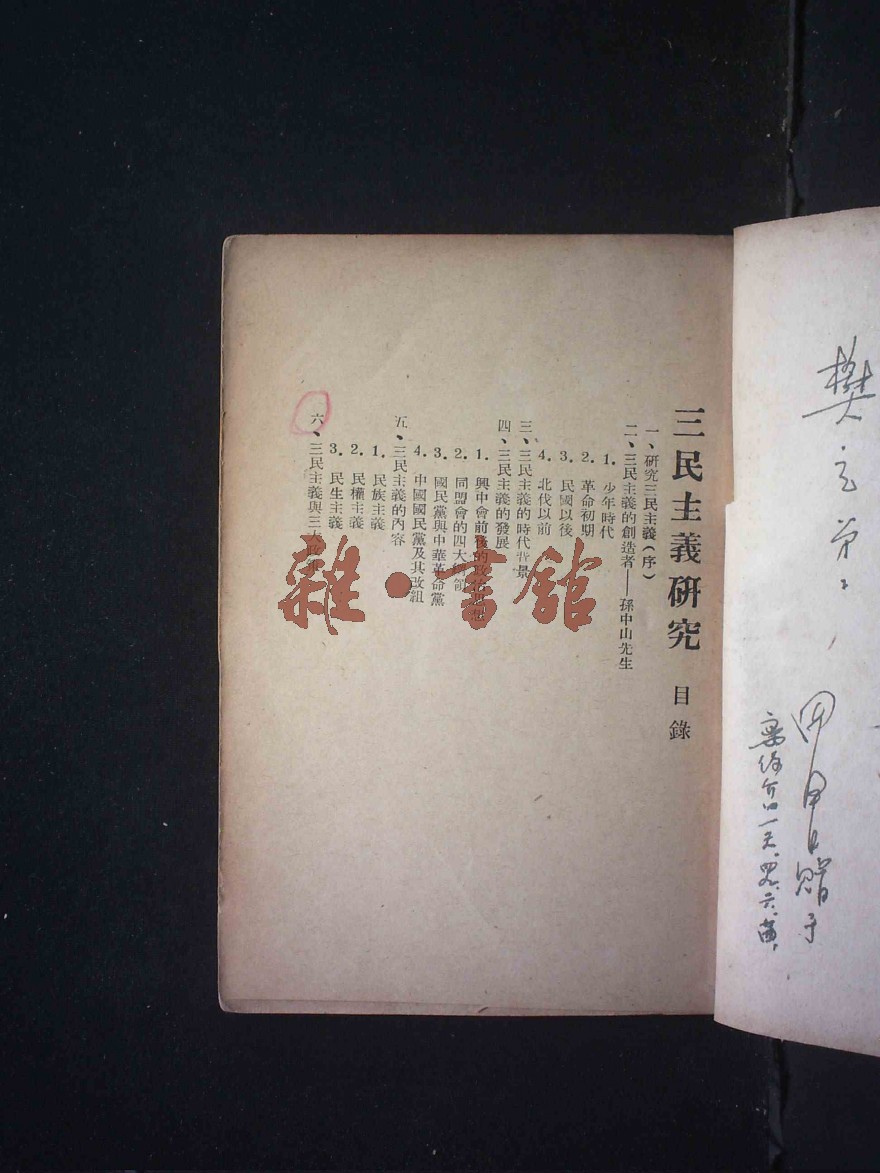 三民主義研究 目錄
一、研究三民主義(序)
二、三民主義的創造者——孫中山先生
1. 少年時代
2. 革命初期
3. 民國以後
4. 北伐以前
三、三民主義的時代背景
四、三民主義的發展
1. 興中會前後的政治思想
2. 同盟會的四大綱領
3. 國民黨與中華革命黨
4. 中國國民黨及其改組
五、三民主義的內容
1. 民族主義
2. 民權主義
3. 民生主義
六、三民主義與三大政策
雜·書館
樊